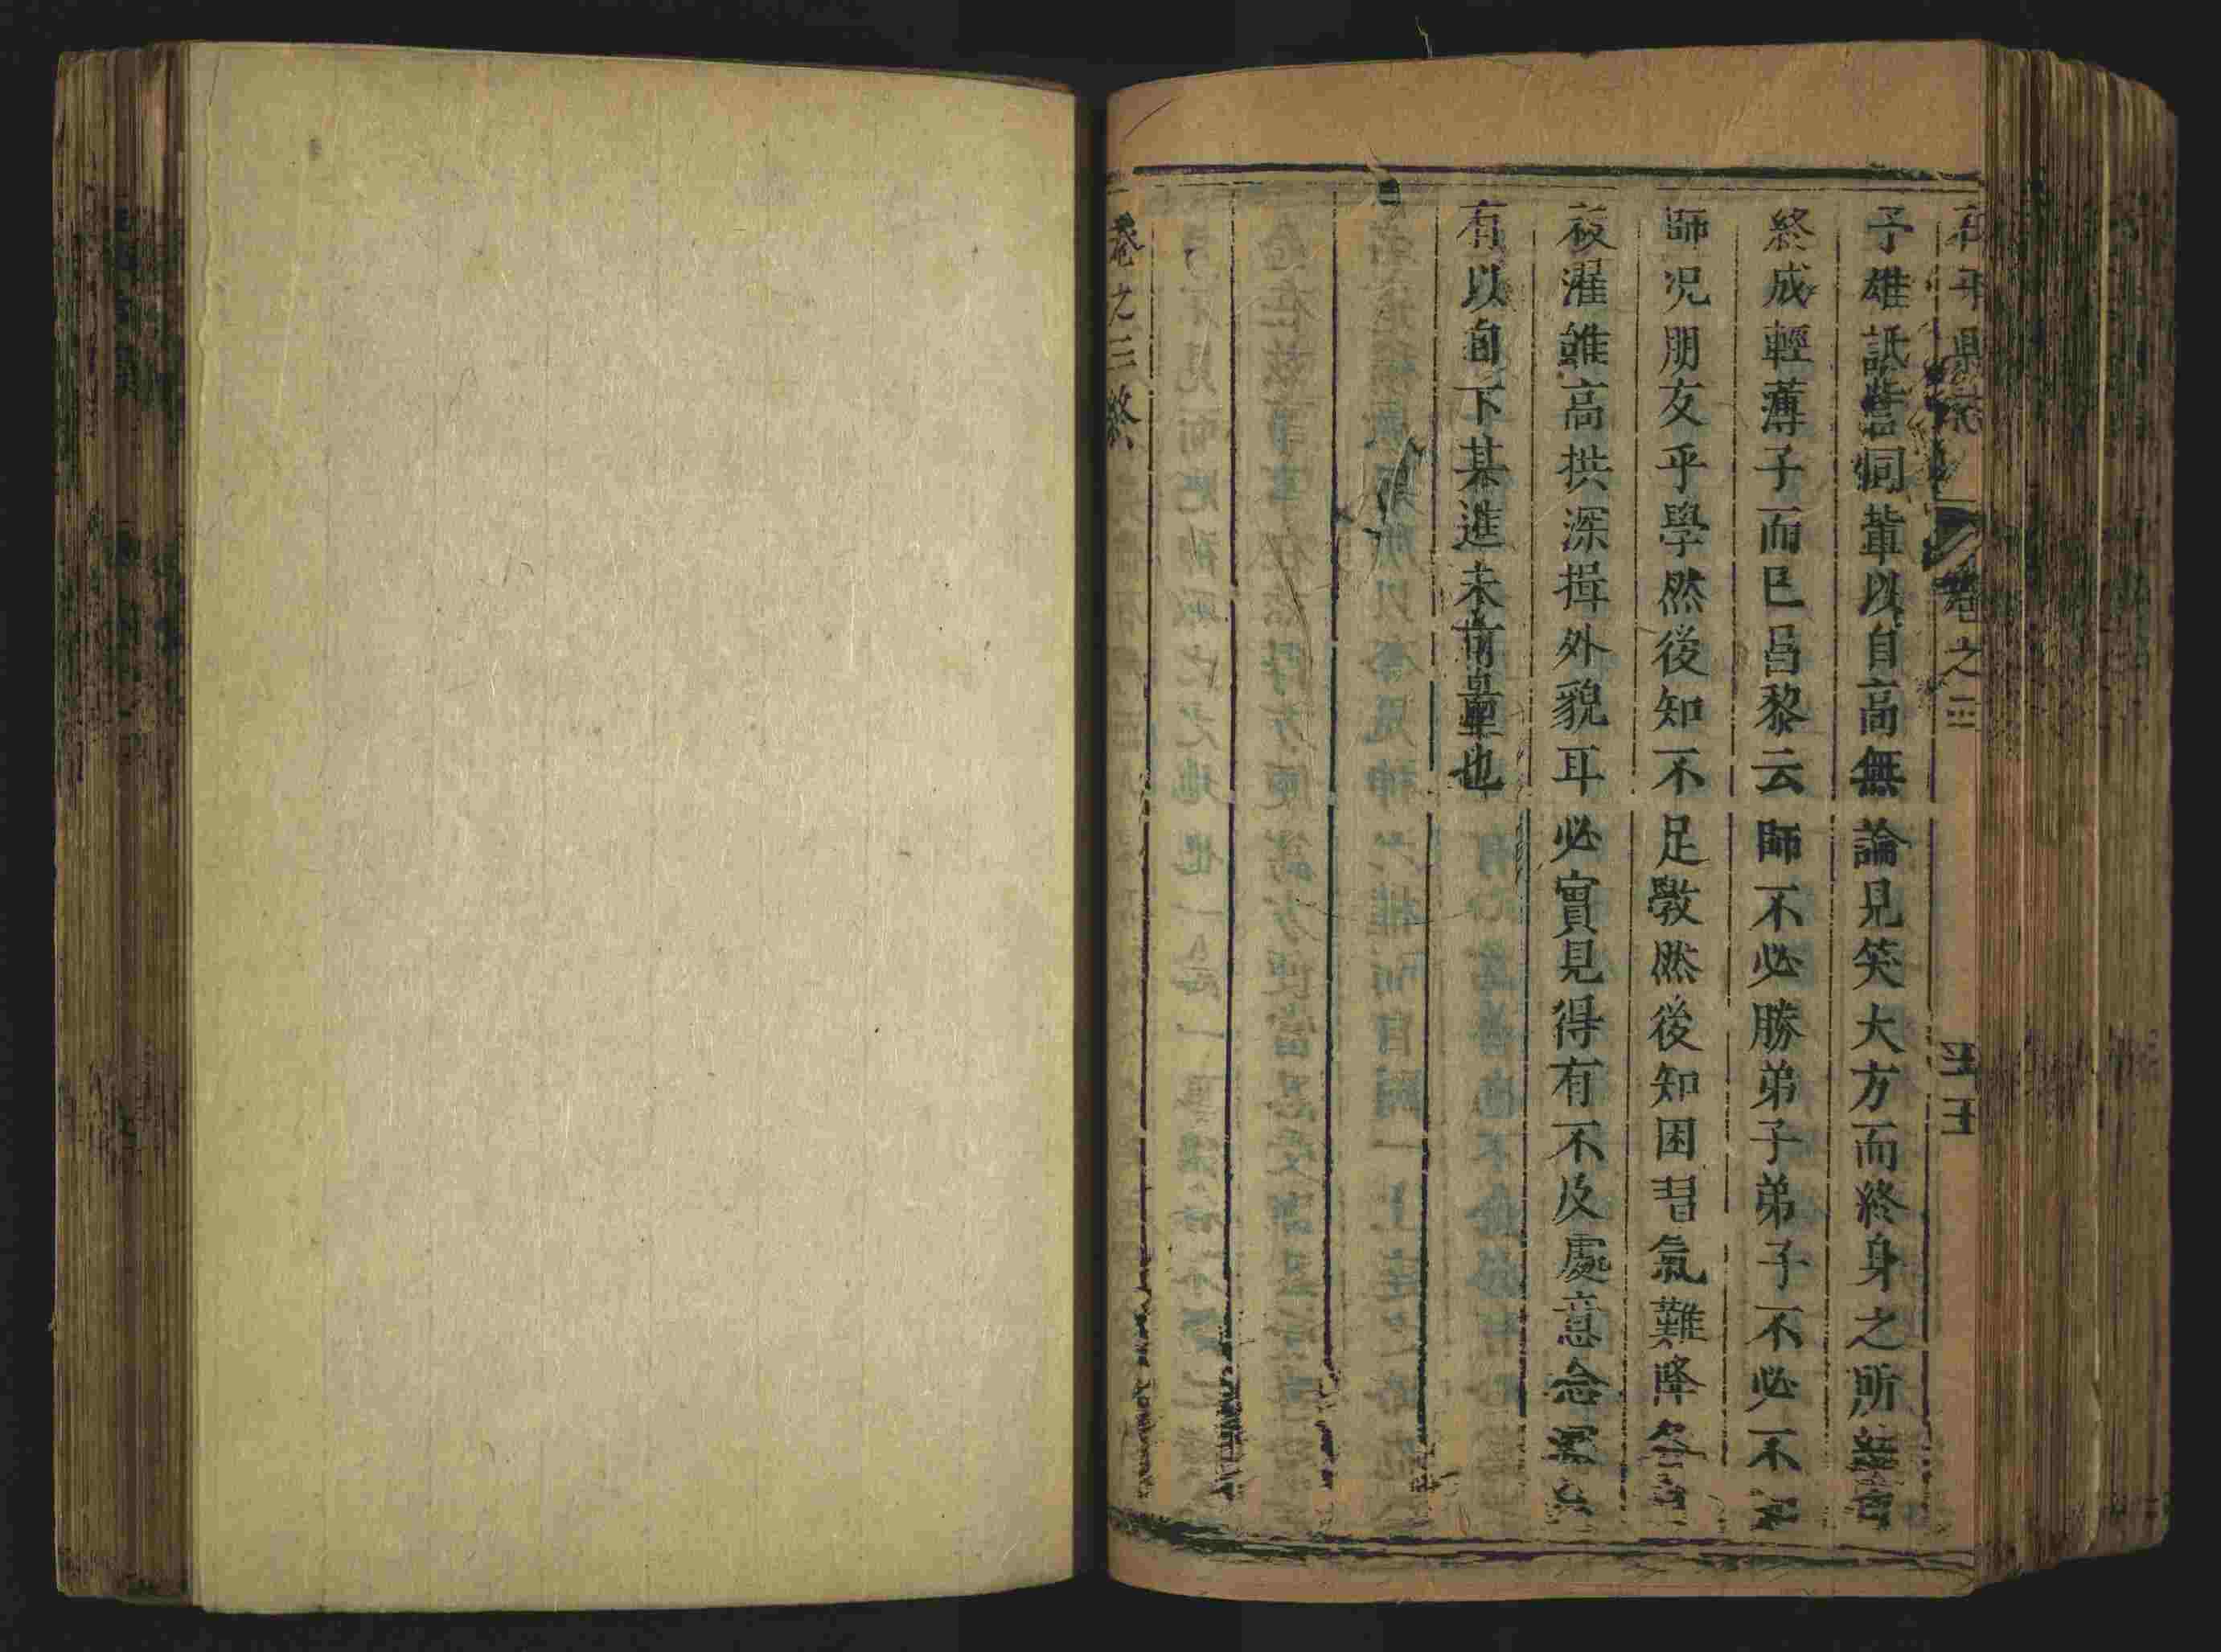 卷之三
子雄詆訾同輩以自高無論見笑大方而終身之所
終成輕薄子而已昌黎云師不必勝弟子弟子不必不
師况朋友乎學然後知不足教然後知困習氣難降各
荻濯雖高拱深揖外貌耳必實見得有不及處意念
有以自下某進未有量也
卷之三終